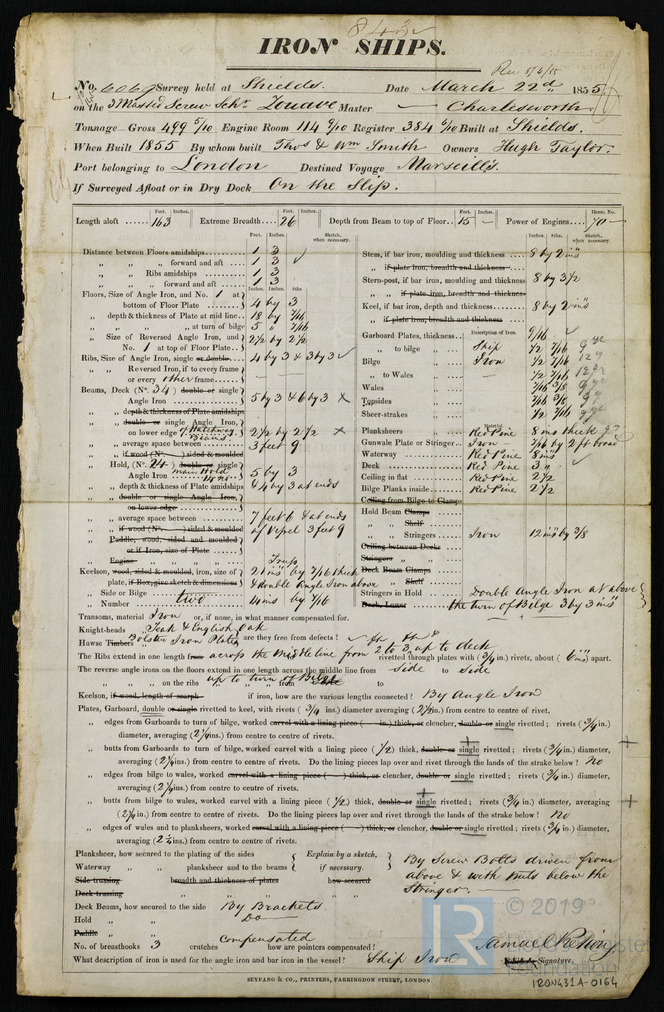 IRON SHIPS.
No. 6069 Survey held at Shields. Date March 22nd 1855
on the 3 Masted Screw Schr. Zouave Master — Charlesworth.
Tonnage—Gross 499 5/10 Engine Room 114 9/10 Register 384 6/10 Built at Shields.
When Built 1855 By whom built Thos & Wm Smith Owners Hugh Taylor.
Port belonging to London Destined Voyage Marseilles.
If Surveyed Afloat or in Dry Dock On the Slip.
Length aloft 163 Extreme Breadth 26 Depth from Beam to top of Floor 15 — Power of Engines 70 —
Distance between Floors amidships 1 3
„ „ forward and aft 1 3
„ Ribs amidships 1 3
„ „ forward and aft 1 3
Floors, Size of Angle Iron, and No. 1 at bottom of Floor Plate 4 by 3
„ depth & thickness of Plate at mid line 18 by 7/16
„ „ at turn of bilge 5 „ 7/16
„ Size of Reversed Angle Iron, and No. 1 at top of Floor Plate 2 1/2 by 2 1/2
Ribs, Size of Angle Iron, single or double 4 by 3 & 3 by 3
„ Reversed Iron, if to every frame or every other frame
Beams, Deck (No. 34) double or single Angle Iron 5 by 3 & 6 by 3 x
„ depth & thickness of Plate amidships
„ double or single Angle Iron, on lower edge 2 1/2 by 2 1/2 x
„ average space between 3 feet 9
„ if wood (No. ) sided & moulded
„ Hold, (No. 24) double or single Angle Iron 5 by 3
„ depth & thickness of Plate amidships 4 by 3 at ends
„ double or single Angle Iron, on lower edge
„ average space between 7 feet 6 & at ends
„ if wood (No. ) sided & moulded of Vessel 3 feet 9
„ Paddle, wood, sided and moulded or if Iron, size of Plate
„ Engine
Keelson, wood, sided & moulded, iron, size of plate, if Box, give sketch & dimensions 21 ins by 7/16 thick & double Angle Iron above
„ Side or Bilge two 4 ins by 7/16
„ Number
Stem, if bar iron, moulding and thickness 8 by 2 ins
„ if plate iron, breadth and thickness
Stern-post, if bar iron, moulding and thickness 8 by 3 1/2
„ „ if plate iron, breadth and thickness
Keel, if bar iron, depth and thickness 8 by 2 ins
„ if plate iron, breadth and thickness
Garboard Plates, thickness 9/16
„ to bilge Ship 1/2 7/16
Bilge Iron 1/2 7/16
„ to Wales 1/2 7/16
Wales 7/16 3/8
Topsides 7/16 3/8
Sheer-strakes 1/2 7/16
Planksheers Red Pine 3 ins thick
Gunwale Plate or Stringer Iron 7/16 by 2 ft broad
Waterway Red Pine 8 ins
Deck Red Pine 3 „
Ceiling in flat Red Pine 2 1/2
Bilge Planks inside Red Pine 2 1/2
Ceiling from Bilge to Clamps
Hold Beam Clamps
„ „ Shelf
„ „ Stringers Iron 12 ins by 3/8
Ceiling between Decks
Stringers „ „
Deck Beam Clamps
„ „ Shelf
Stringers in Hold Double Angle Iron at & above
Deck, Lower the turn of Bilge 3 by 3 ins
Transoms, material Iron or, if none, in what manner compensated for.
Knight-heads „ Teak & English Oak
Hawse Timbers „ Bolster Iron Plates are they free from defects?
The Ribs extend in one length from across the Middle line from 2 to 3 up to deck rivetted through plates with (3/4 in.) rivets, about ( 6 ins) apart.
The reverse angle irons on the floors extend in one length across the middle line from side to side
„ „ on the ribs up to turn of Bilge „ from to
Keelson, if wood, length of scarph if iron, how are the various lengths connected? By Angle Iron
Plates, Garboard, double or single rivetted to keel, with rivets ( 3/4 ins.) diameter averaging (2 1/2 in.) from centre to centre of rivets.
„ edges from Garboards to turn of bilge, worked carvel with a lining piece ( in.) thick, or clencher, double or single rivetted; rivets (3/4 in.)
diameter, averaging (2 1/4 ins.) from centre to centre of rivets.
„ butts from Garboards to turn of bilge, worked carvel with a lining piece (1/2) thick, double or single rivetted; rivets (3/4 in.) diameter,
averaging (2 1/4 ins.) from centre to centre of rivets. Do the lining pieces lap over and rivet through the lands of the strake below? No
„ edges from bilge to wales, worked carvel with a lining piece ( ) thick, or clencher, double or single rivetted; rivets (3/4 in.) diameter,
averaging (2 1/4 ins.) from centre to centre of rivets.
„ butts from bilge to wales, worked carvel with a lining piece (1/2) thick, double or single rivetted; rivets (3/4 in.) diameter, averaging
(2 1/4 in.) from centre to centre of rivets. Do the lining pieces lap over and rivet through the lands of the strake below? No
„ edges of wales and planksheers, worked carvel with a lining piece ( ) thick, or clencher, double or single rivetted; rivets (3/4 in.) diameter,
averaging (2 1/4 ins.) from centre to centre of rivets.
Planksheer, how secured to the plating of the sides Explain by a sketch, By Screw Bolts driven from
Waterway „ planksheer and to the beams if necessary. above & with Nuts below the
Side trussing breadth and thickness of plates how secured Stringer.
Deck trussing „ „
Deck Beams, how secured to the side By Brackets
Hold „ „ Do
Paddle „ „
No. of breasthooks 3 crutches Compensated how are pointers compensated?
What description of iron is used for the angle iron and bar iron in the vessel? Ship Iron
Signature.
LR © 2019
Foundation
IRON431A-0164
SEYFANG & CO., PRINTERS, FARRINGDON STREET, LONDON.